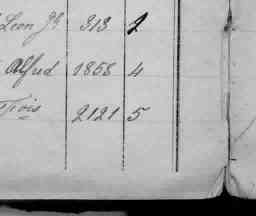 Leon Jh 313 2
Alfred 1858 4
2121 5